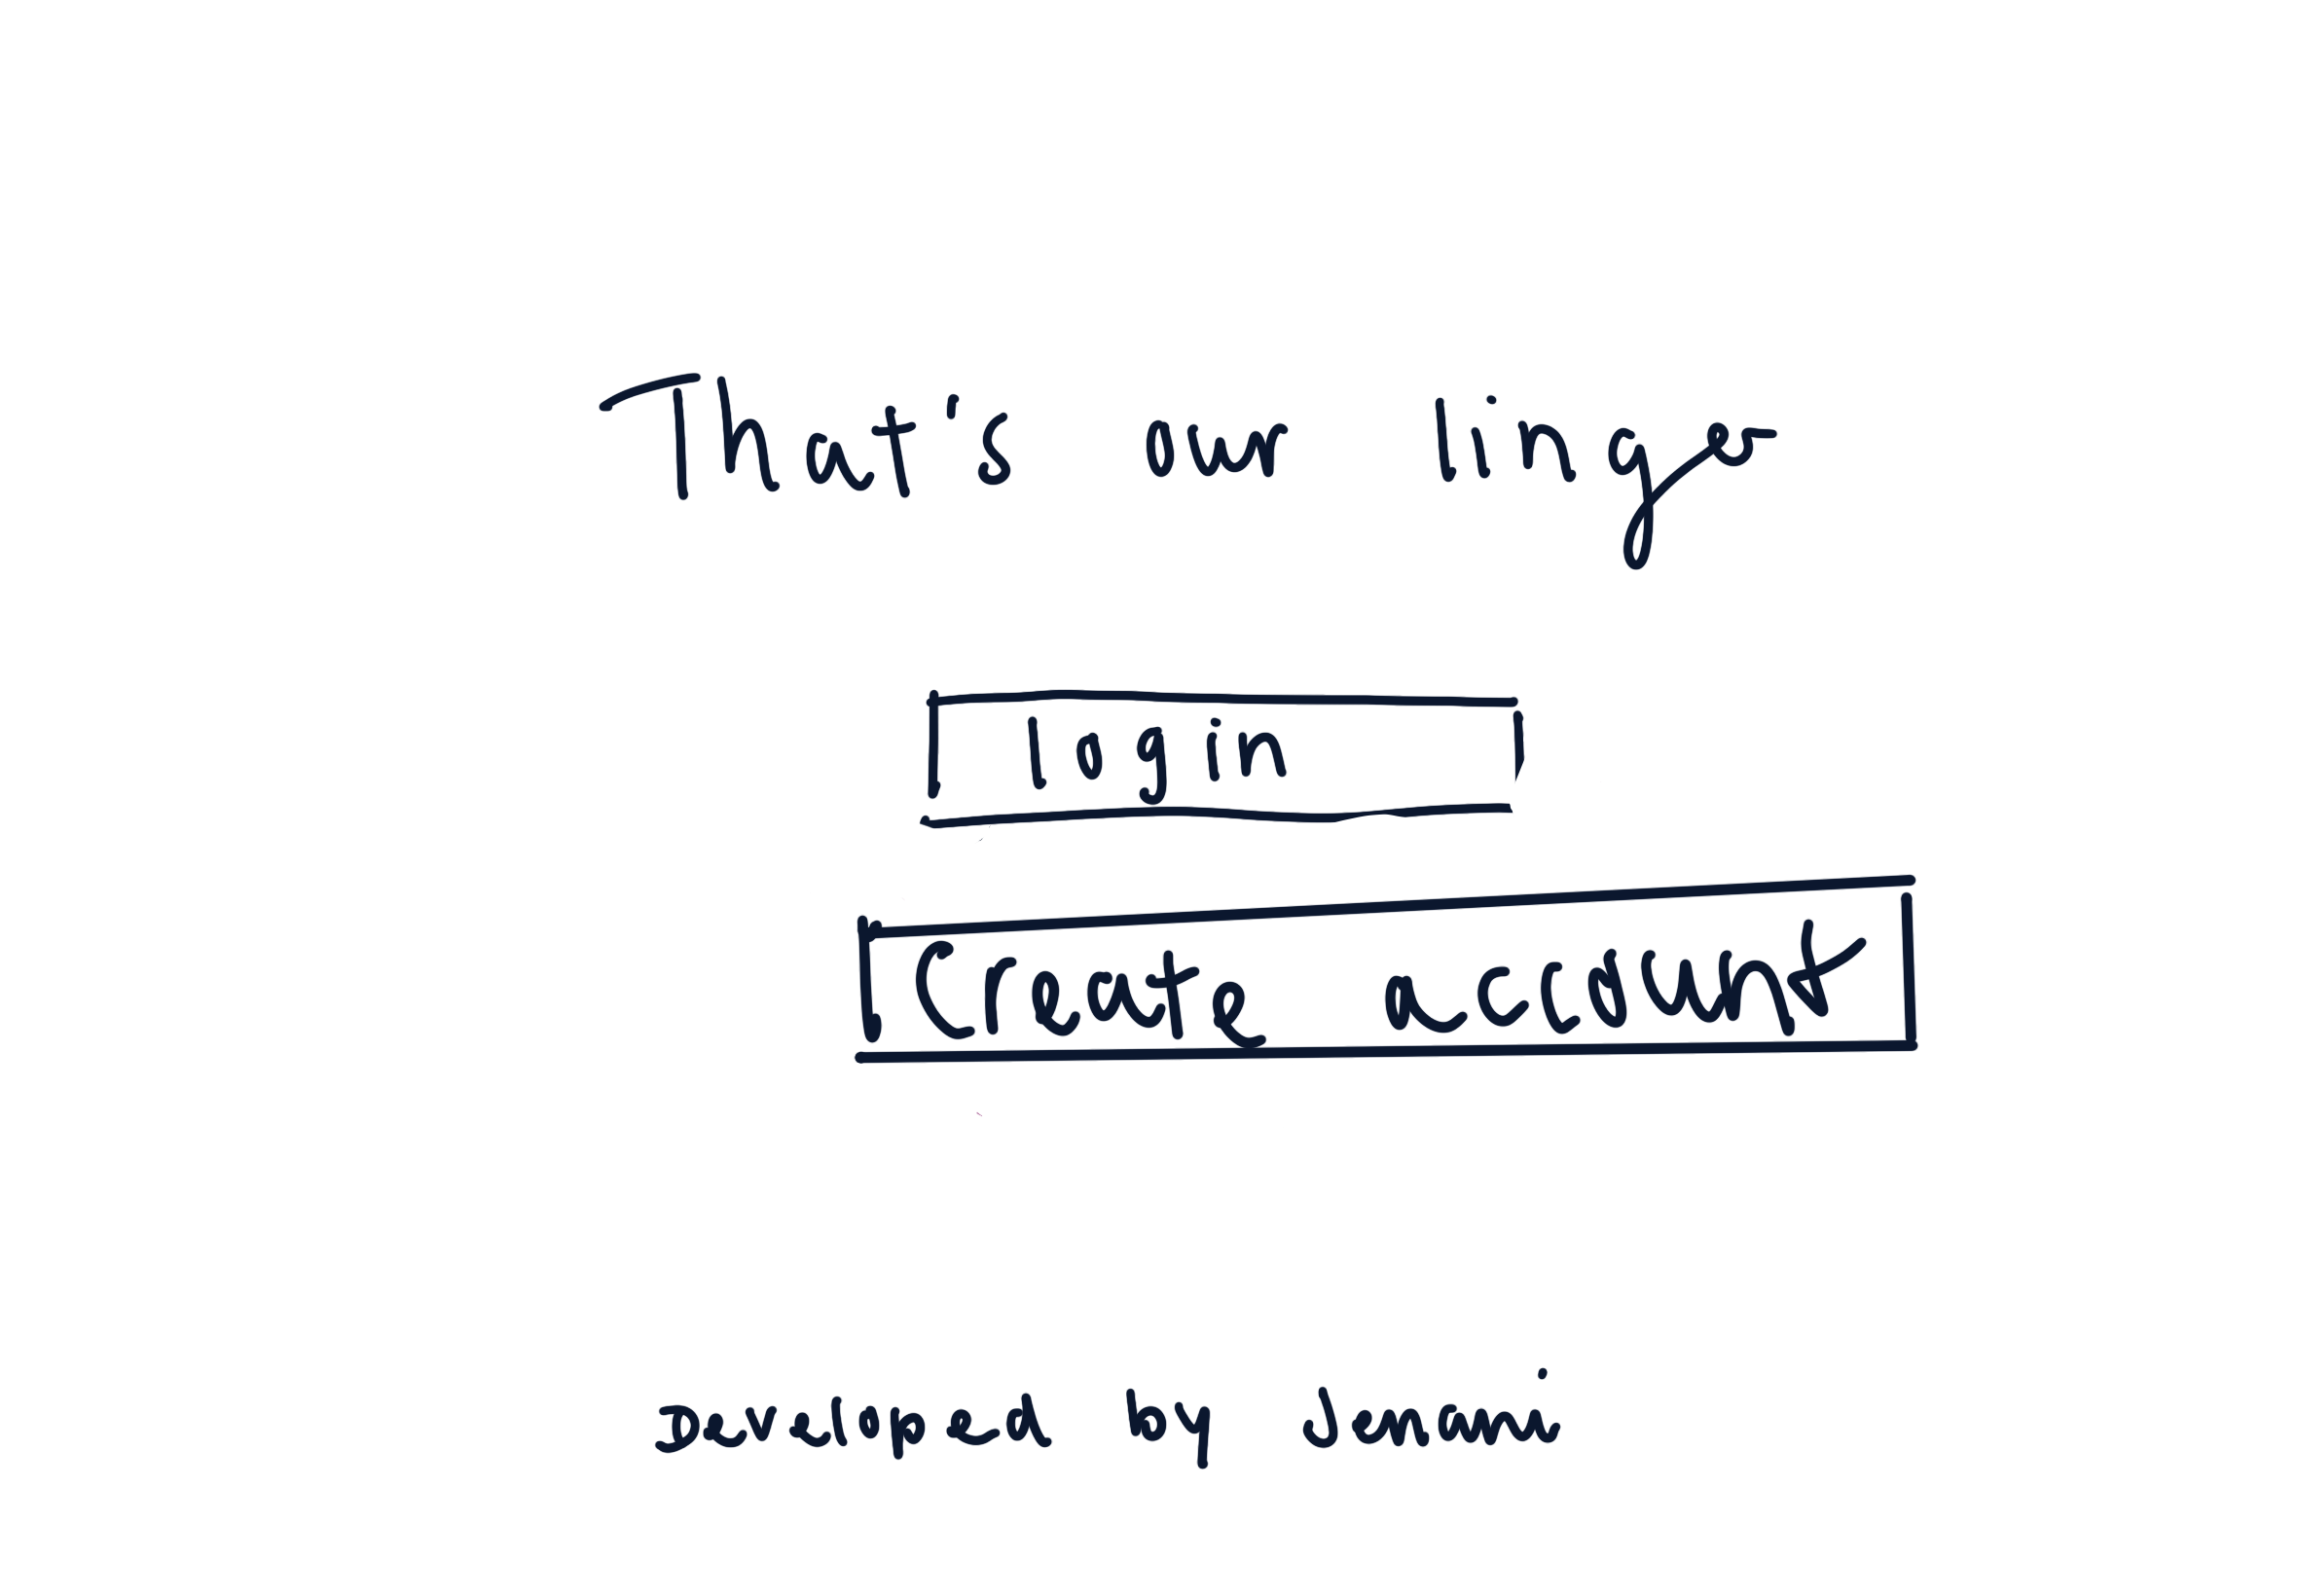 That's our linger
login
Create account
Developed by Jenni